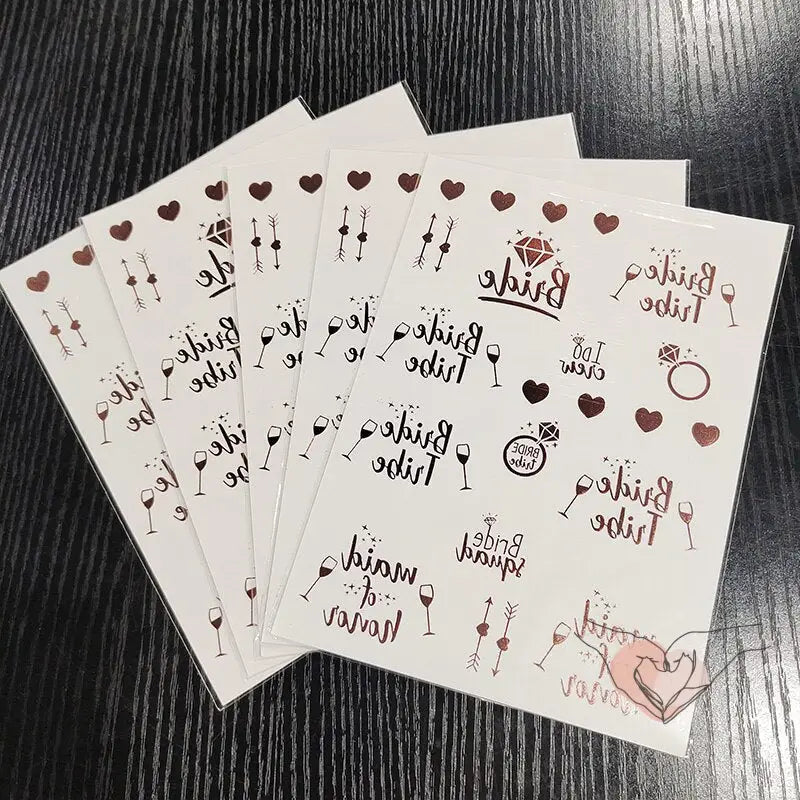 Bride
Bride
Tribe
Bride
Tribe
I DO
crew
Bride
Tribe
BRIDE
tribe
Bride
Tribe
Bride
squad
maid
of
honor
maid
of
honor